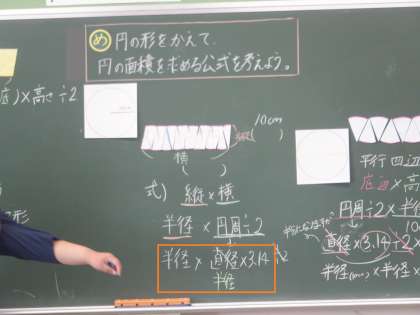 め 円の形をかえて、
円の面積を求める公式を考えよう。
底)×高さ÷2
10cm
( )
横
( )
式) 縦×横
半径×円周÷2
半径×直径×3.14÷2
半径
平行四辺
底辺×高
円周÷2×半径
直径×3.14÷2
半径 ×半径×
形